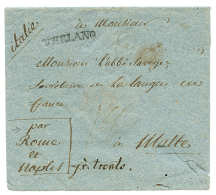 à Monsieur
Italie
V. ERLANG
Monsieur l'abbé Savoye
Secrétaire de la langue de
france
par
Rome
et
Naples
à Malte
fr. Trento.